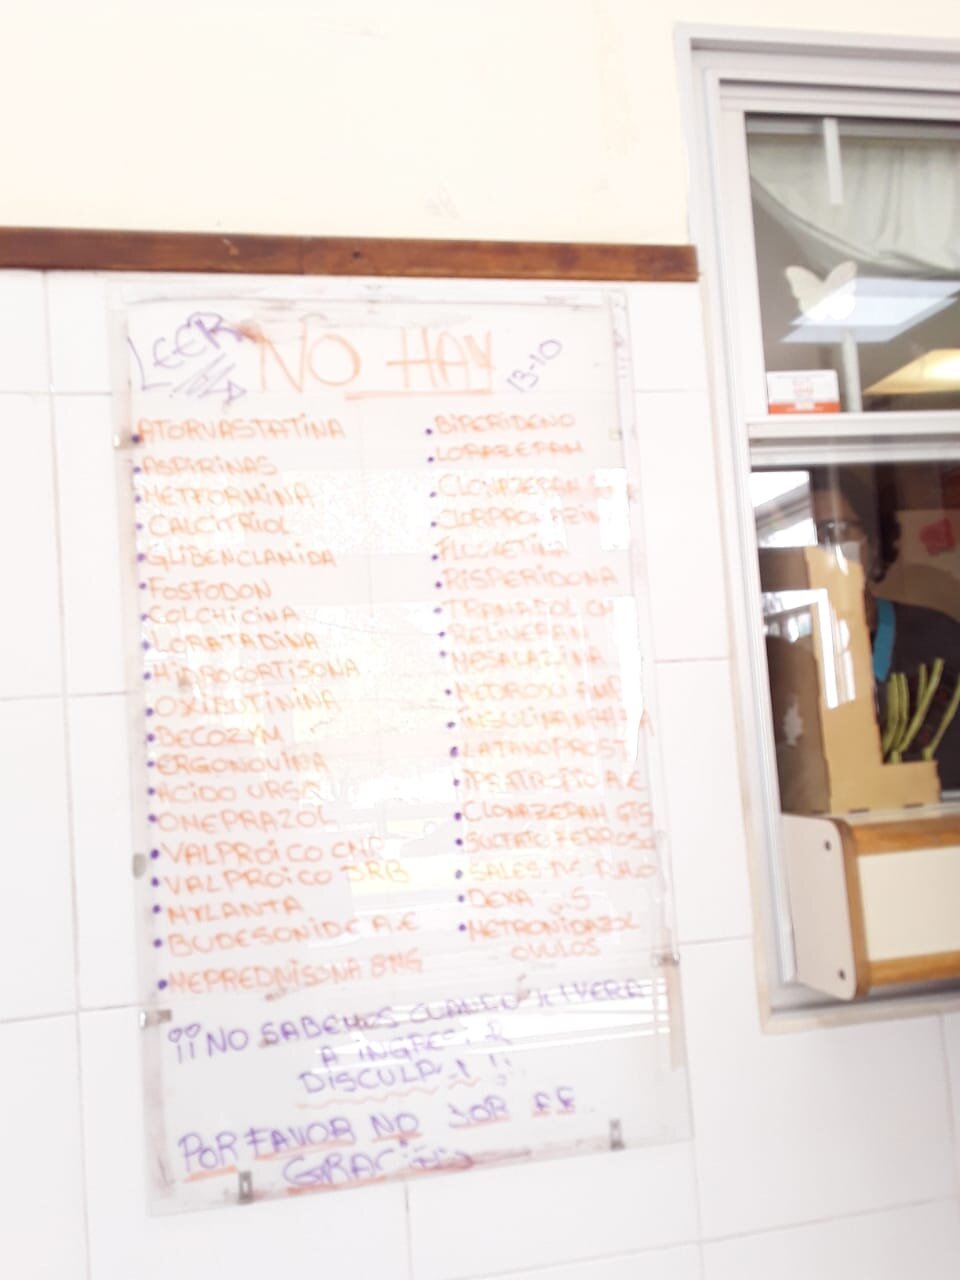 LEER
NO HAY
13-10
ATORVASTATINA
ASPIRINAS
METFORMINA
CALCITRIOL
GLIBENCLAMIDA
FOSFODON
COLCHICINA
LORATADINA
HIDROCORTISONA
OXIBUTININA
BECOZYM
ERGONOVINA
ACIDO URSO
OMEPRAZOL
VALPROICO CMP
VALPROICO JRB
MYLANTA
BUDESONIDE A.E
MEPREDNISONA 8MG
BIPERIDENO
LORAZEPAM
CLONAZEPAN
FLUOXETINA
RISPERIDONA
MESALAZINA
LATANOPROST
CLONAZEPAN GTS
SULFATO FERROSO
SALES DE
DEXA
METRONIDAZOL
OVULOS
¡¡NO SABEMOS CUANDO
A
POR FAVOR NO
GRACIAS